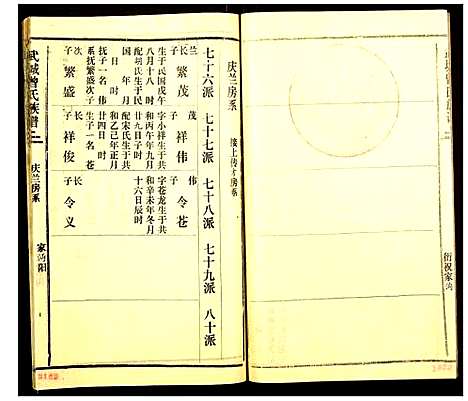 庆兰房系
接上传才房系
七十六派 七十七派 七十八派 七十九派 八十派
兰长子 繁茂
生于民国戊午
八月十八 时
配胡氏生于民
国 年 月
日 时
抚子一名 伟
系抚繁盛次子
子 繁盛
茂子 祥伟
字小祥生于共
和丙午年九月
廿九日子时
配宋氏生于共
和乙巳年正月
廿四日 时
生子一名 苍
长子 祥俊
伟子 令苍
字苍龙生于共
和辛未年冬月
十六日辰时
子 令义
武城曾氏族谱
庆兰房系